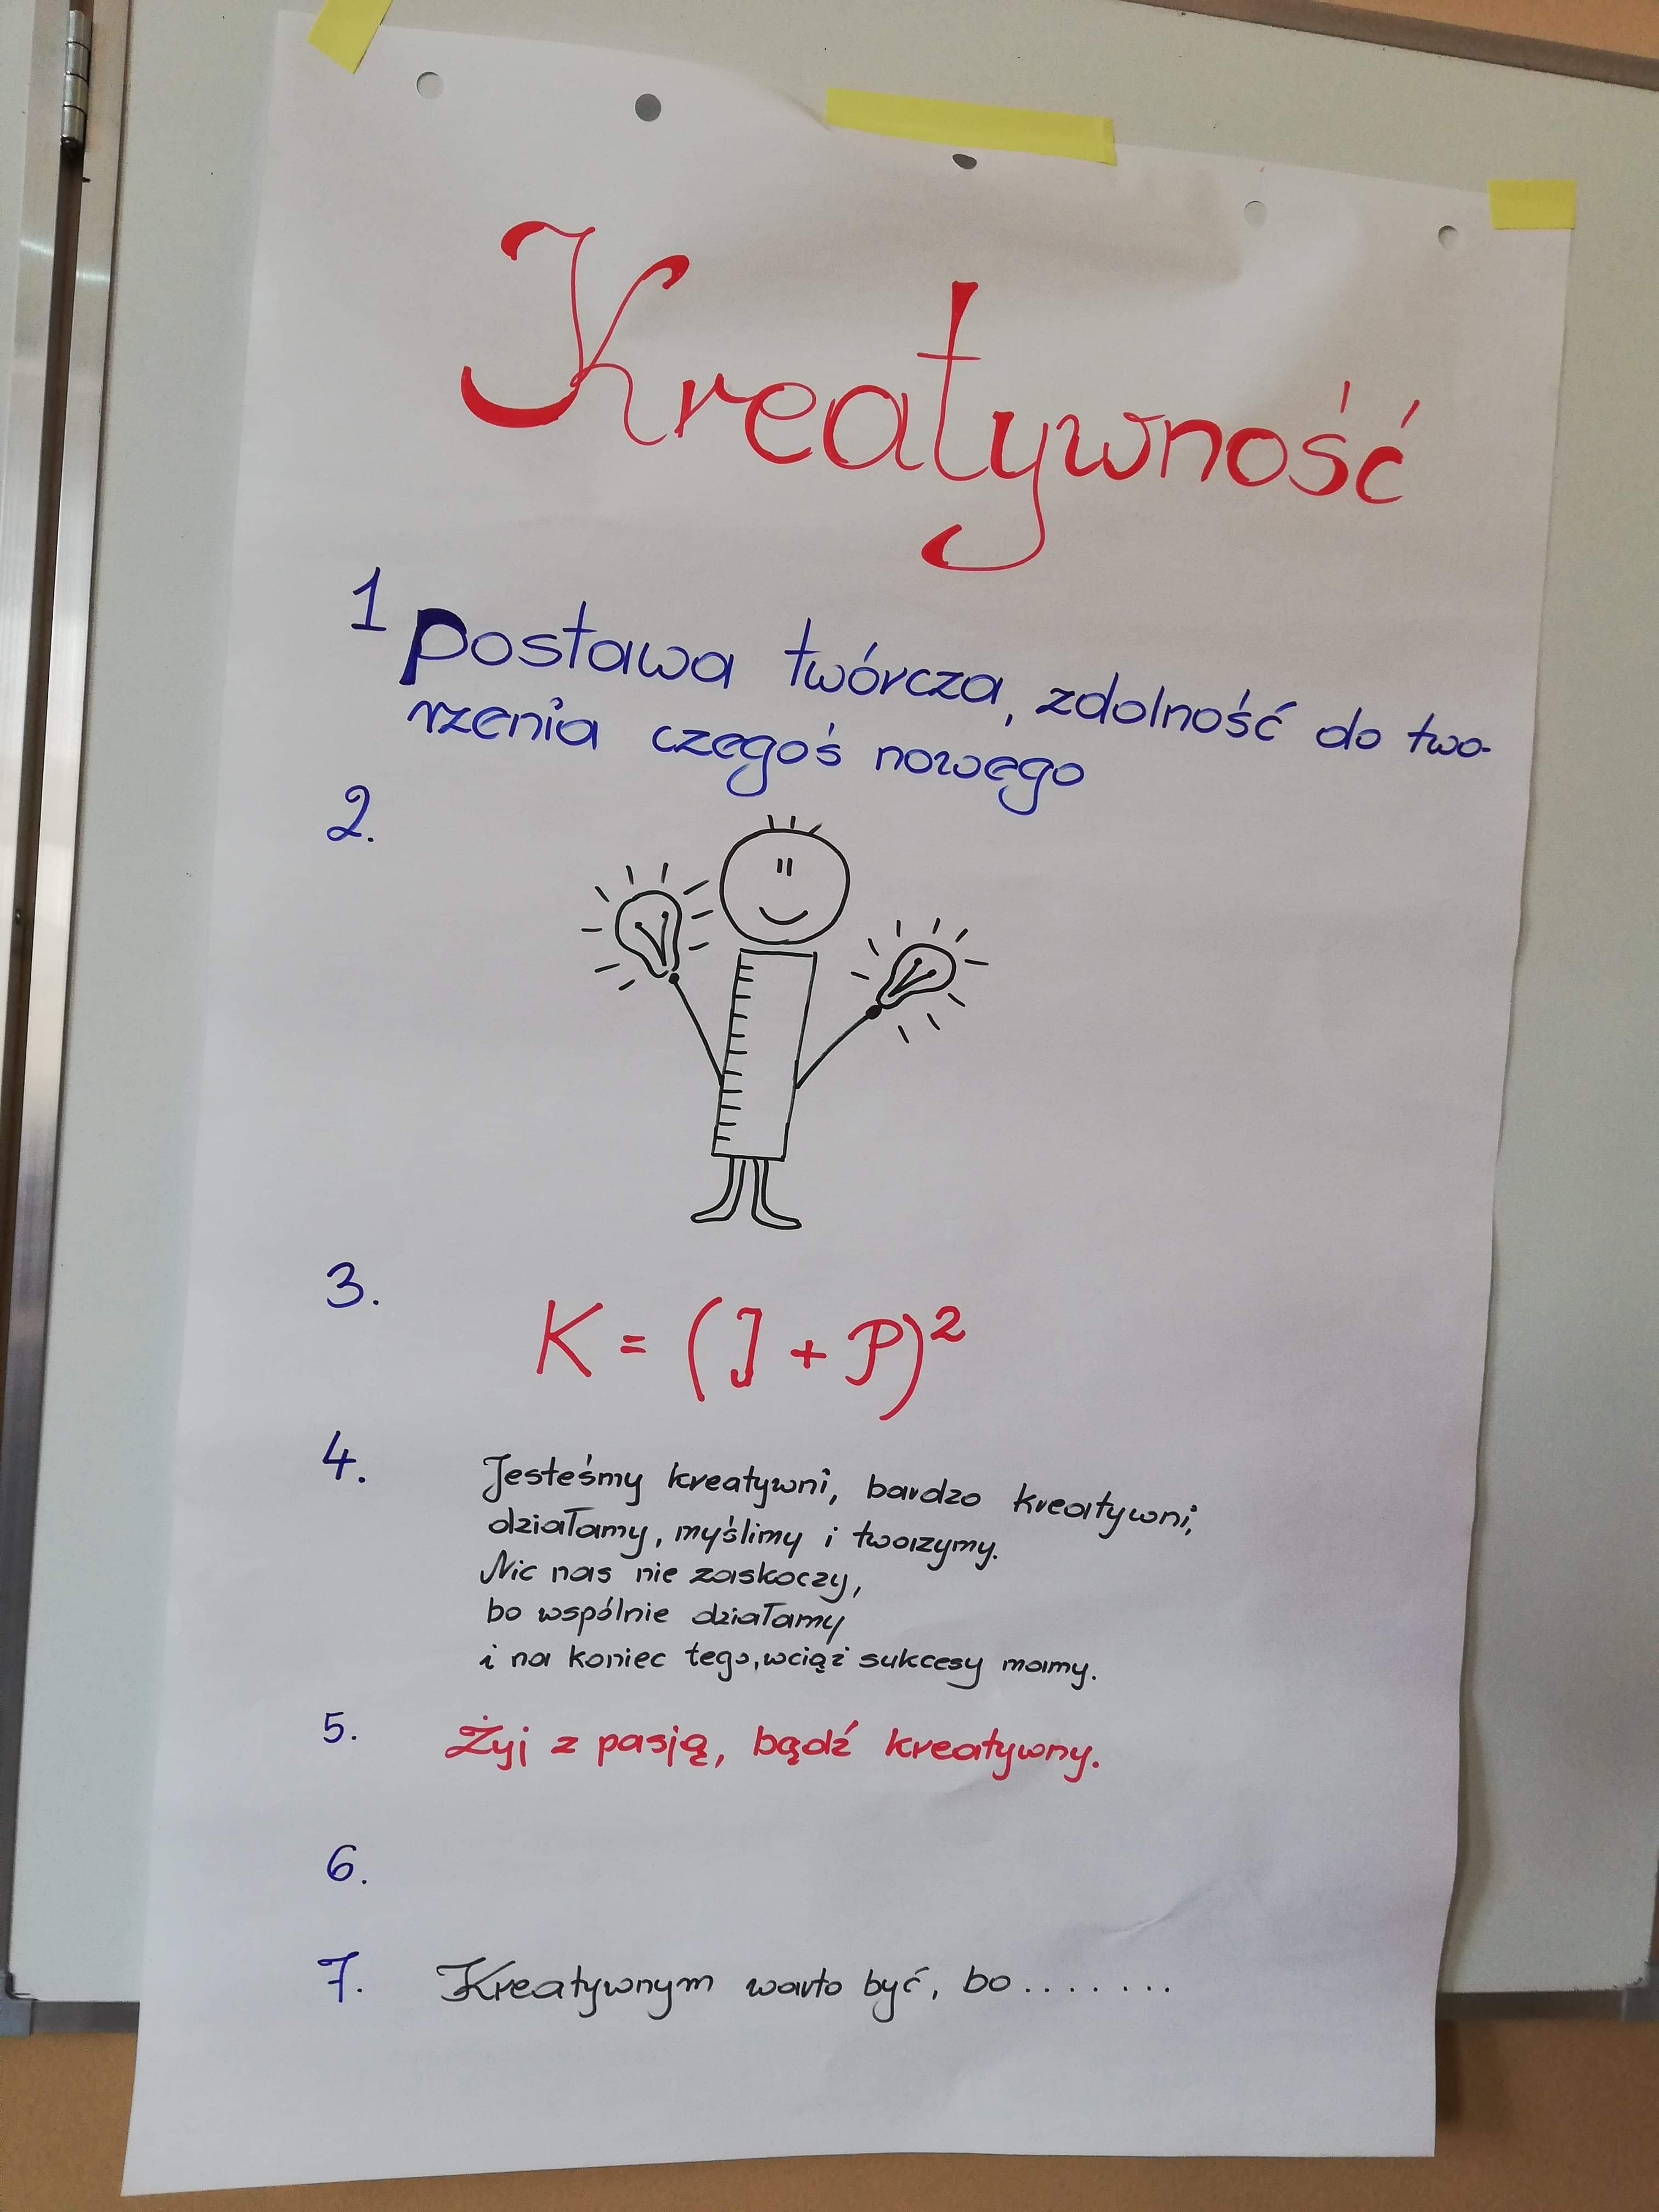 Kreatywność
1 Postawa twórcza, zdolność do two-
rzenia czegoś nowego
2.
3. K = (J + P)²
4. Jesteśmy kreatywni, bardzo kreatywni,
działamy, myślimy i tworzymy.
Nic nas nie zaskoczy,
bo wspólnie działamy
i na koniec tego, wciąż sukcesy mamy.
5. Żyj z pasją, bądź kreatywny.
6.
7. Kreatywnym warto być, bo........